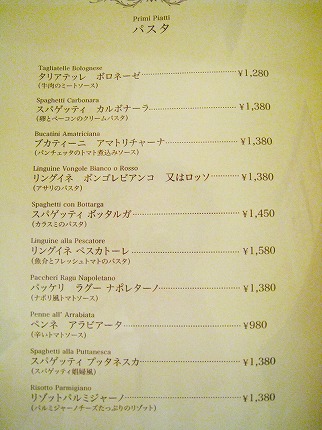 Primi Piatti
パスタ
Tagliatelle Bolognese
タリアテッレ ボロネーゼ ¥1,280
(牛肉のミートソース)
Spaghetti Carbonara
スパゲッティ カルボナーラ ¥1,380
(卵とベーコンのクリームパスタ)
Bucatini Amatriciana
ブカティーニ アマトリチャーナ ¥1,380
(パンチェッタのトマト煮込みソース)
Linguine Vongole Bianco o Rosso
リングイネ ボンゴレビアンコ 又はロッソ ¥1,380
(アサリのパスタ)
Spaghetti con Bottarga
スパゲッティ ボッタルガ ¥1,450
(カラスミのパスタ)
Linguine alla Pescatore
リングイネ ペスカトーレ ¥1,580
(魚介とフレッシュトマトのパスタ)
Paccheri Ragu Napoletano
パッケリ ラグー ナポレターノ ¥1,380
(ナポリ風トマトソース)
Penne all' Arrabiata
ペンネ アラビアータ ¥980
(辛いトマトソース)
Spaghetti alla Puttanesca
スパゲッティ プッタネスカ ¥1,380
(スパゲッティ娼婦風)
Risotto Parmigiano
リゾットパルミジャーノ ¥1,380
(パルミジャーノチーズたっぷりのリゾット)